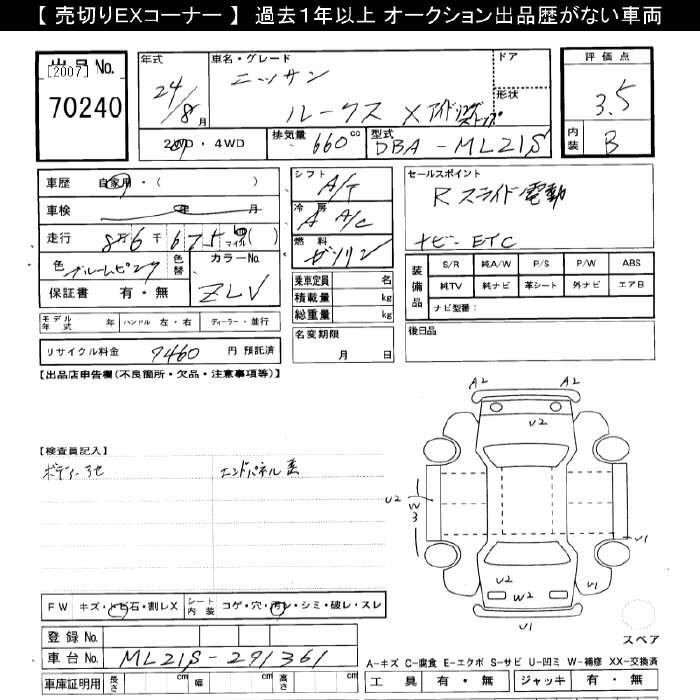 【 売切りEXコーナー 】 過去1年以上 オークション出品歴がない車両
出品No.
[2007]
70240
年式
24/8月
車名・グレード
ニッサン
ルークス X アイドリングストップ
ドア
形状
評価点
3.5
内装
B
2WD・4WD
排気量 660cc
型式 DBA-ML21S
車歴 自家用・( )
車検 年 月
走行 8万6千675 マイル( )
色 ブルームピンク 色替
カラーNo. ZLV
保証書 有・無
シフト A/T
冷房 A A/C
燃料 ガソリン
乗車定員 名
積載量 kg
総重量 kg
名変期限
月 日
セールスポイント
Rスライド電動
ナビ-ETC
装備品
S/R 純A/W P/S P/W ABS
純TV 純ナビ 革シート 外ナビ エアB
ナビ型番:
後日品
モデル年式 年 ハンドル 左・右 ディーラー・並行
リサイクル料金 9460 円 預託済
【出品店申告欄(不良箇所・欠品・注意事項等)】
【検査員記入】
ボディー
エンドパネル
A2 A2
U2
U2 W3
U1
U2 W2 U1
U1
スペア
FW キズ・トビ石・割レX
シート内装 コゲ・穴・汚レ・シミ・破レ・スレ
登録No.
車台No. ML21S-291361
車庫証明用 長さ cm 幅 cm 高さ cm
A-キズ C-腐食 E-エクボ S-サビ U-凹ミ W-補修 XX-交換済
工具 有・無 ジャッキ 有・無